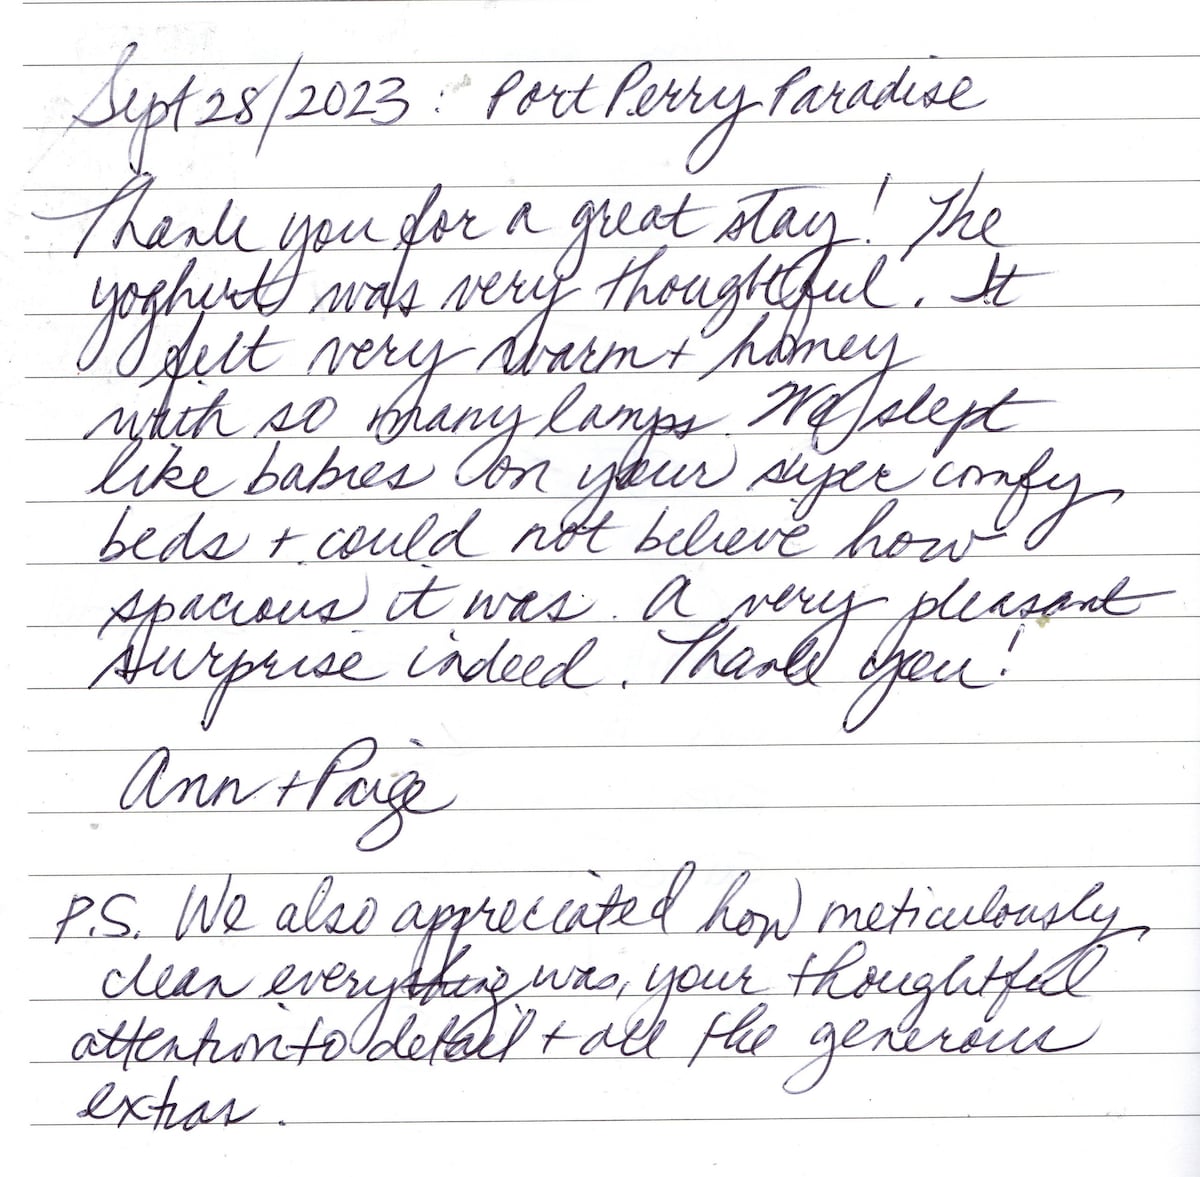 Sept 28/2023 : Port Perry Paradise
Thank you for a great stay! The
yoghurt was very thoughtful. It
felt very warm + homey
with so many lamps. We slept
like babies on your super comfy
beds + could not believe how
spacious it was. A very pleasant
surprise indeed. Thank you!
Ann + Paige
P.S. We also appreciated how meticulously
clean everything was, your thoughtful
attention to detail + all the generous
extras.